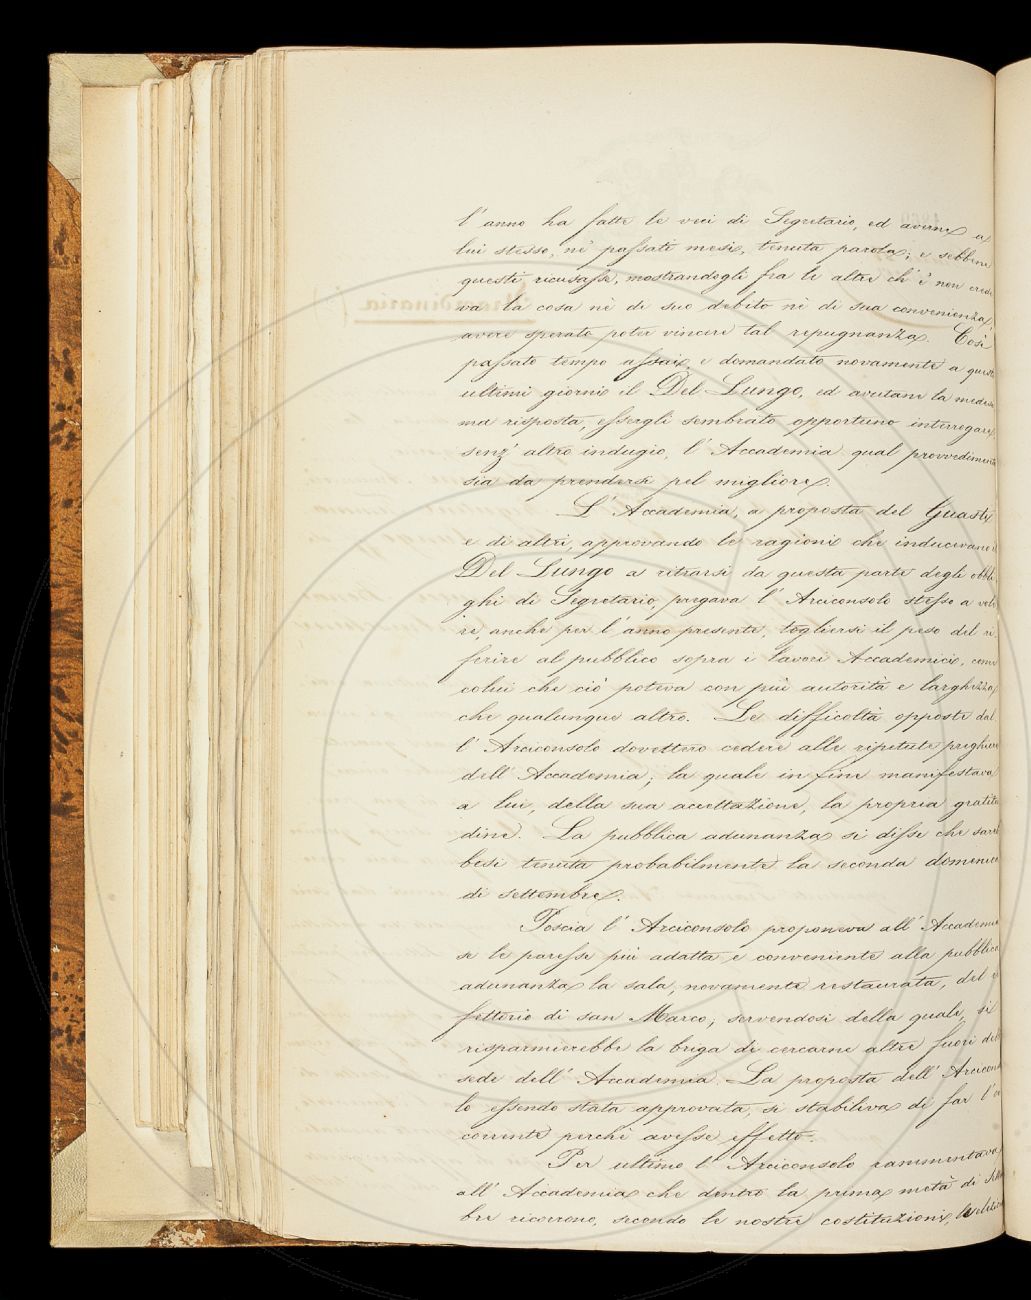 l' anno ha fatte le veci di Segretario, ed averne a
lui stesso, nè passati mesi, tenuta parola; e sebbene
questi ricusasse, mostrandogli fra le altre ch' è non crede
va la cosa nè di suo debito nè di sua convenienza,
avere sperato poter vincere tal repugnanza. Così
passato tempo assai, e domandato novamente a questi
ultimi giorni il Del Lungo, ed avutane la medesi
ma risposta, essergli sembrato opportuno interrogare,
senz' altro indugio, l' Accademia qual provvedimento
sia da prendersi pel migliore.
L' Accademia, a proposta del Guasti
e di altri, approvando le ragioni che inducevano il
Del Lungo a ritrarsi da questa parte degli obbli
ghi di Segretario, pregava l' Arciconsolo stesso a vole
re, anche per l' anno presente, togliersi il peso del ri
ferire al pubblico sopra i lavori Accademici, come
colui che ciò poteva con più autorità e larghezza
che qualunque altro. Le difficoltà opposte dal
l' Arciconsolo dovettero cedere alle ripetute preghiere
dell' Accademia; la quale in fine manifestava
a lui, della sua accettazione, la propria gratitu
dine. La pubblica adunanza si disse che sareb
besi tenuta probabilmente la seconda dominica
di settembre.
Poscia l' Arciconsolo proponeva all' Accademia
se le paresse più adatta e conveniente alla pubblica
adunanza la sala, novamente restaurata, del re
fettorio di san Marco; servendosi della quale, si
risparmierebbe la briga di cercarne altre fuori del
sede dell' Accademia. La proposta dell' Arciconso
lo essendo stata approvata, si stabiliva di far l' o
corrente perchè avesse effetto.
Per ultimo l' Arciconsolo rammentava
all' Accademia che dentro la prima metà di Settem
bre ricorrono, secondo le nostre costituzioni, le